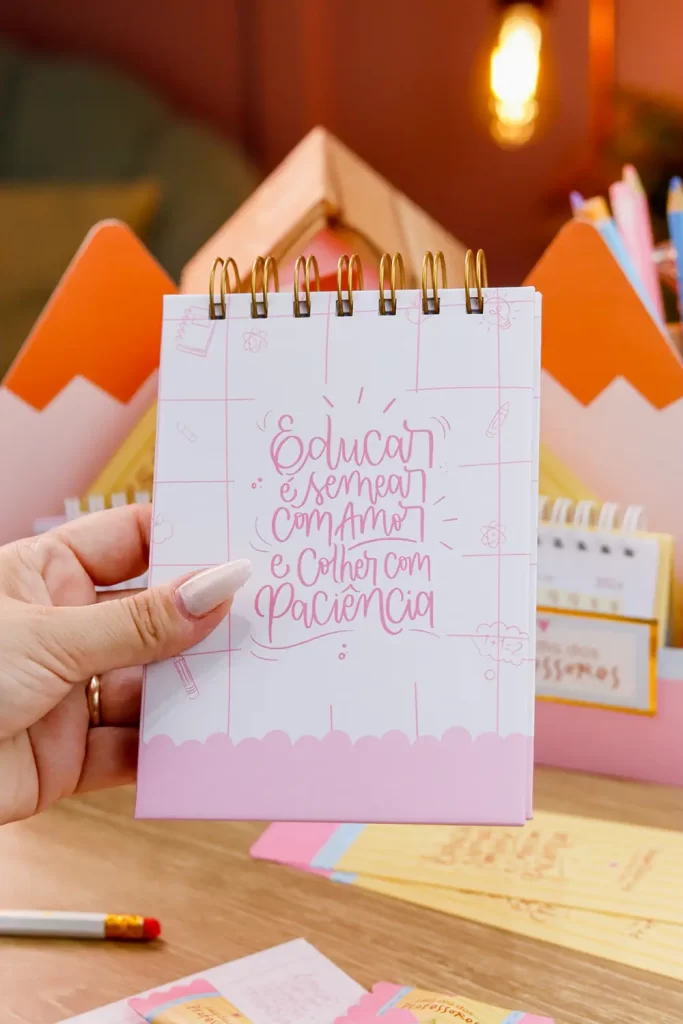 Educar
é semear
com Amor
e Colher com
Paciência
professores